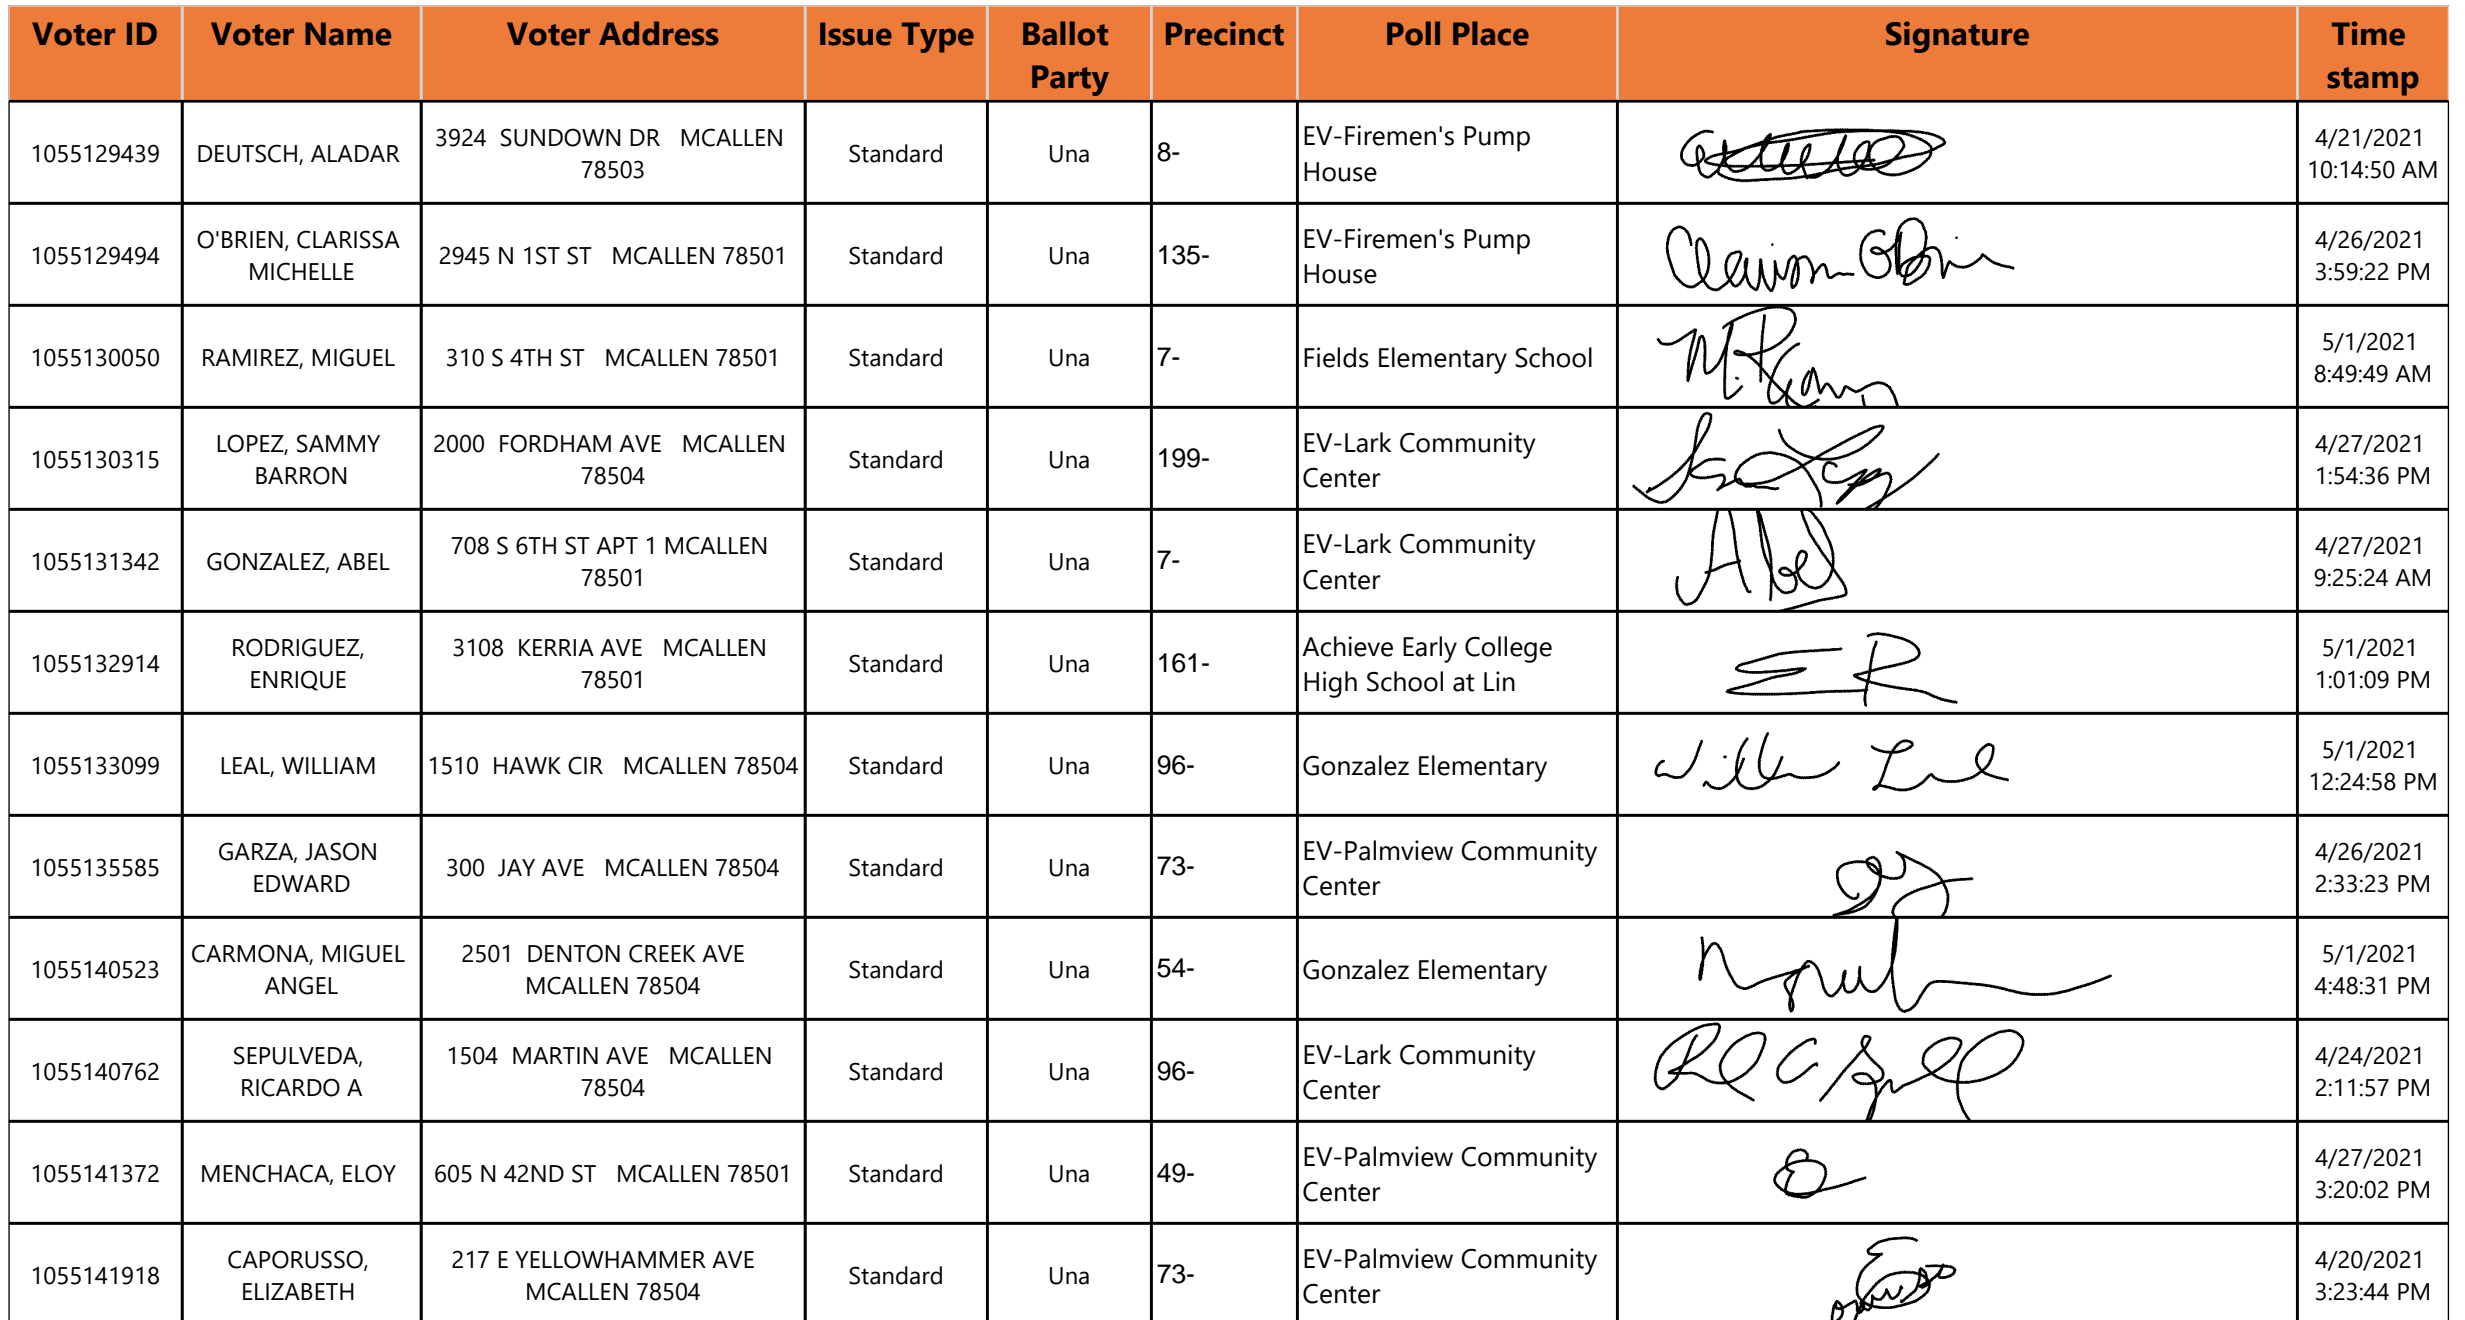 Voter ID Voter Name Voter Address Issue Type Ballot Party Precinct Poll Place Signature Time stamp
1055129439 DEUTSCH, ALADAR 3924 SUNDOWN DR MCALLEN 78503 Standard Una 8- EV-Firemen's Pump House 4/21/2021 10:14:50 AM
1055129494 O'BRIEN, CLARISSA MICHELLE 2945 N 1ST ST MCALLEN 78501 Standard Una 135- EV-Firemen's Pump House 4/26/2021 3:59:22 PM
1055130050 RAMIREZ, MIGUEL 310 S 4TH ST MCALLEN 78501 Standard Una 7- Fields Elementary School 5/1/2021 8:49:49 AM
1055130315 LOPEZ, SAMMY BARRON 2000 FORDHAM AVE MCALLEN 78504 Standard Una 199- EV-Lark Community Center 4/27/2021 1:54:36 PM
1055131342 GONZALEZ, ABEL 708 S 6TH ST APT 1 MCALLEN 78501 Standard Una 7- EV-Lark Community Center Abel 4/27/2021 9:25:24 AM
1055132914 RODRIGUEZ, ENRIQUE 3108 KERRIA AVE MCALLEN 78501 Standard Una 161- Achieve Early College High School at Lin ER 5/1/2021 1:01:09 PM
1055133099 LEAL, WILLIAM 1510 HAWK CIR MCALLEN 78504 Standard Una 96- Gonzalez Elementary 5/1/2021 12:24:58 PM
1055135585 GARZA, JASON EDWARD 300 JAY AVE MCALLEN 78504 Standard Una 73- EV-Palmview Community Center 4/26/2021 2:33:23 PM
1055140523 CARMONA, MIGUEL ANGEL 2501 DENTON CREEK AVE MCALLEN 78504 Standard Una 54- Gonzalez Elementary 5/1/2021 4:48:31 PM
1055140762 SEPULVEDA, RICARDO A 1504 MARTIN AVE MCALLEN 78504 Standard Una 96- EV-Lark Community Center 4/24/2021 2:11:57 PM
1055141372 MENCHACA, ELOY 605 N 42ND ST MCALLEN 78501 Standard Una 49- EV-Palmview Community Center 4/27/2021 3:20:02 PM
1055141918 CAPORUSSO, ELIZABETH 217 E YELLOWHAMMER AVE MCALLEN 78504 Standard Una 73- EV-Palmview Community Center 4/20/2021 3:23:44 PM